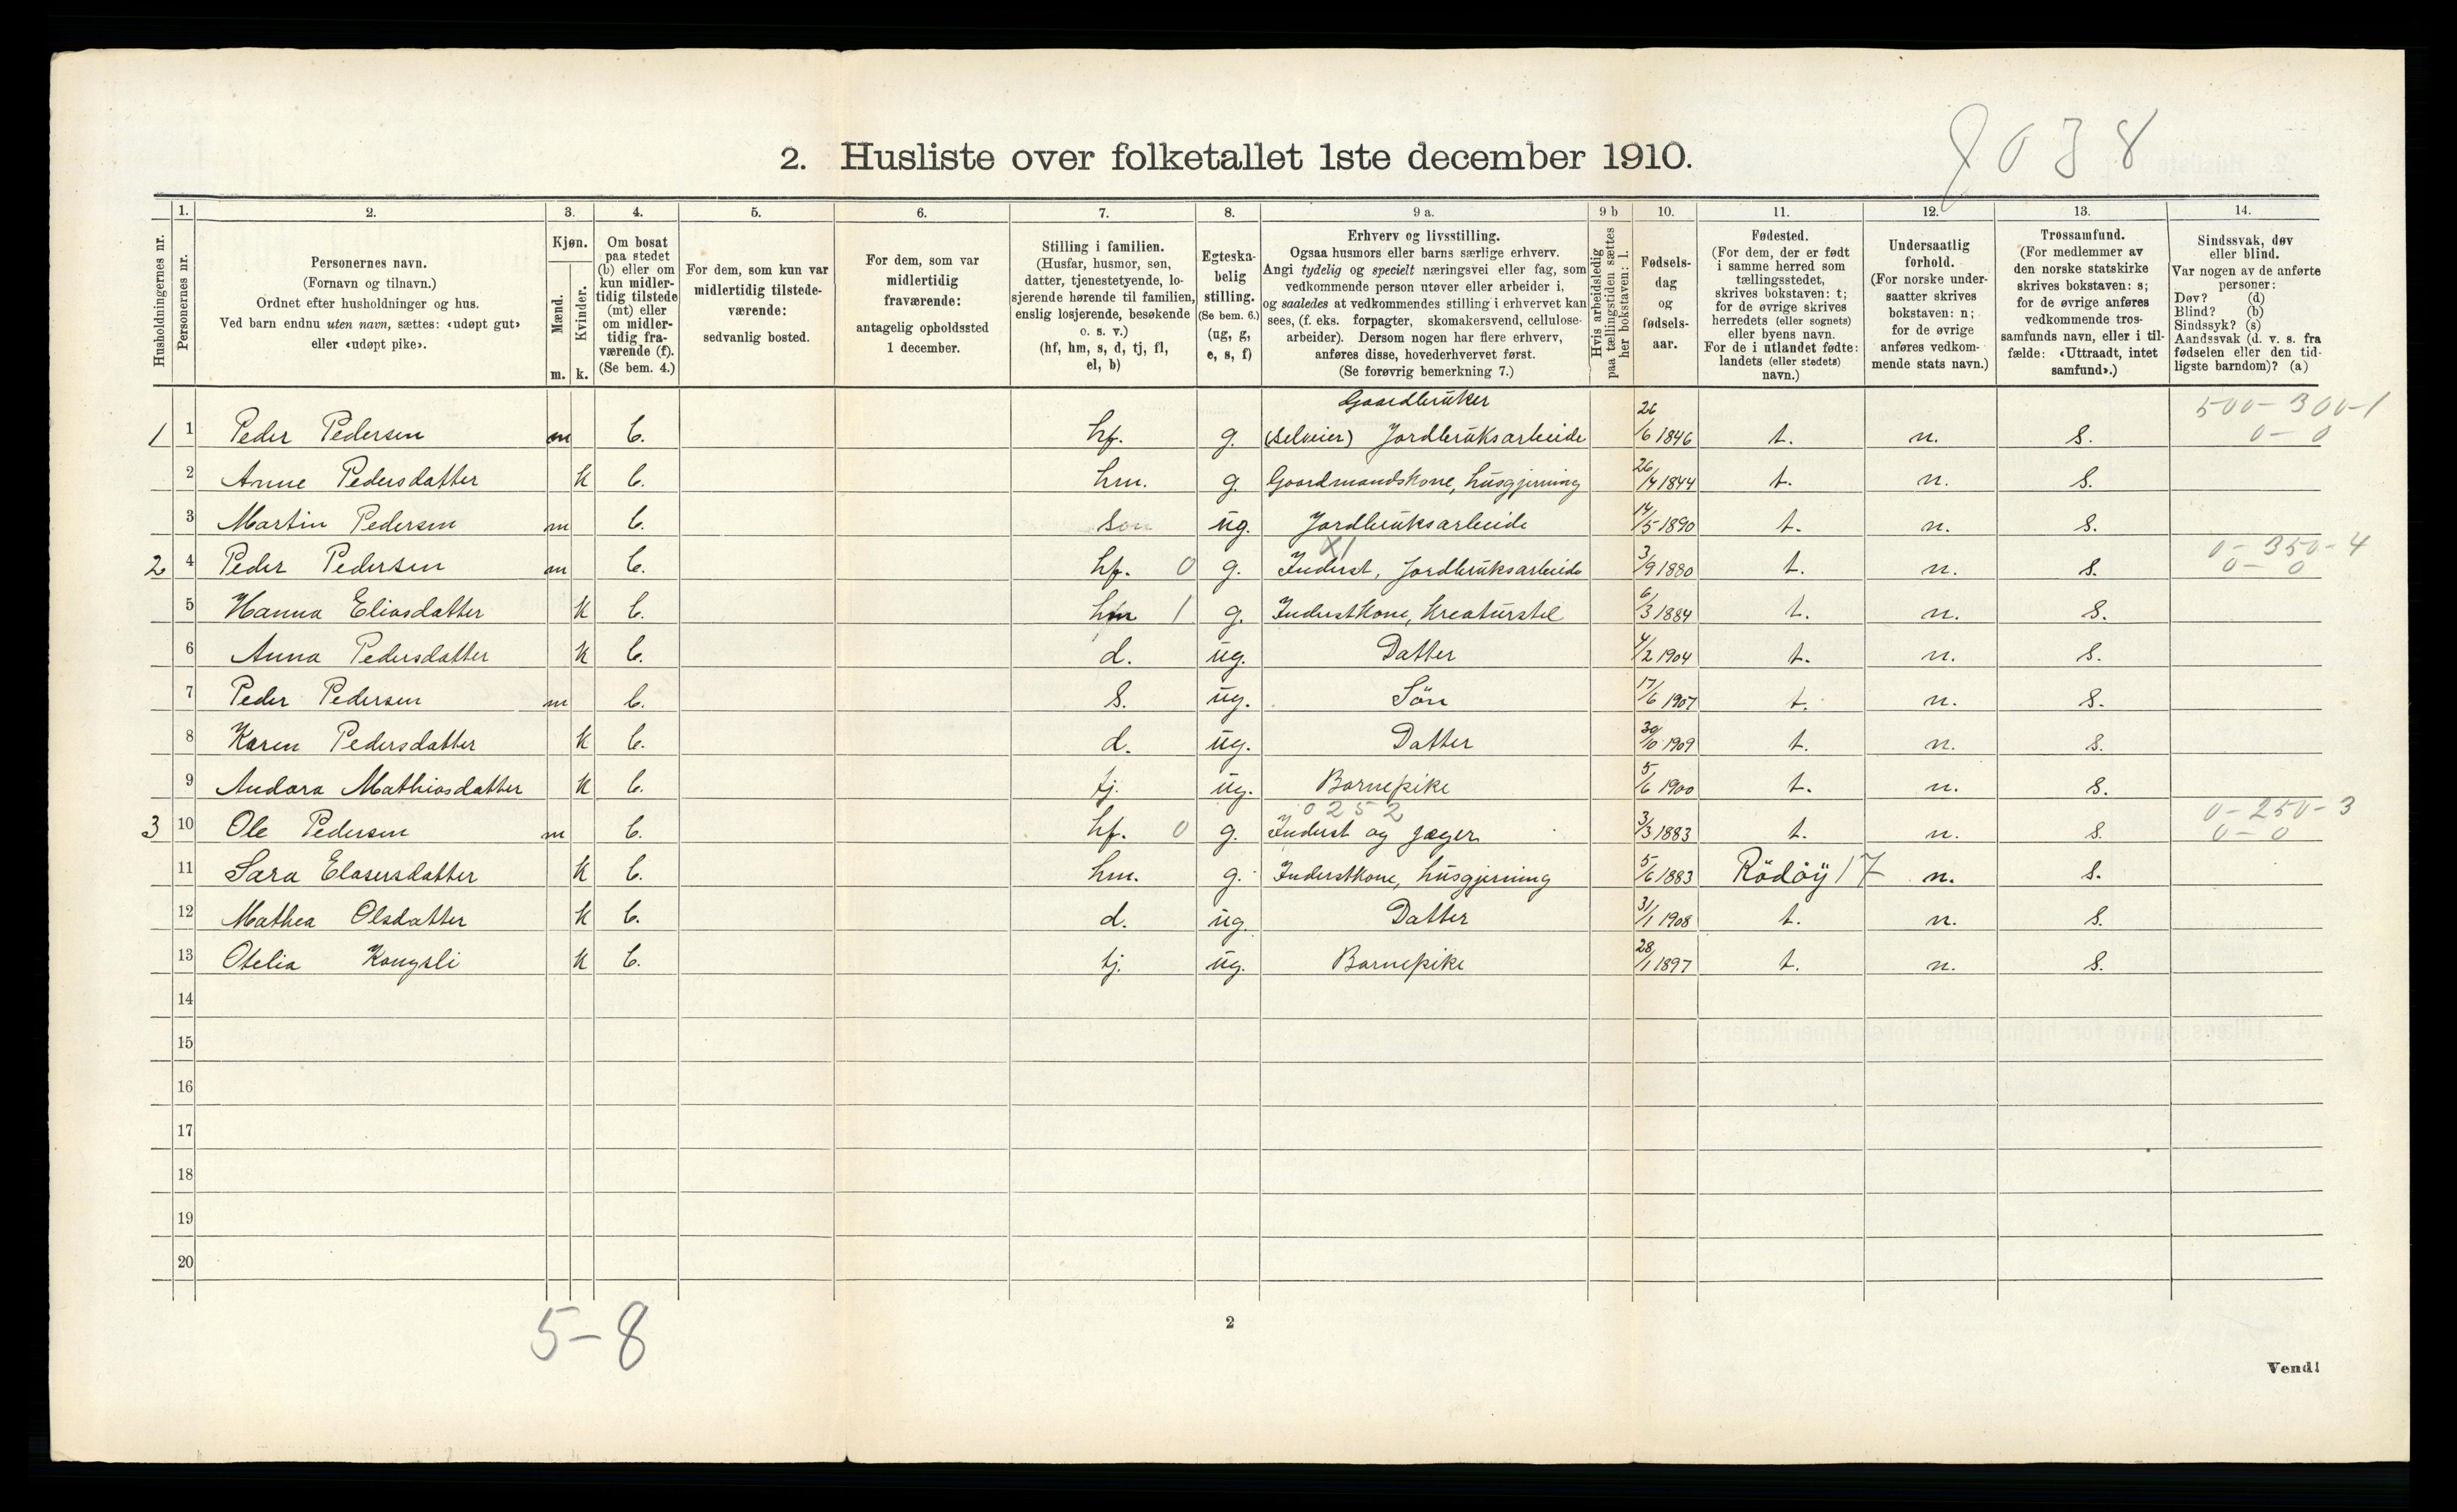 8038
2. Husliste over folketallet 1ste december 1910.
1. 2. 3. 4. 5. 6. 7. 8. 9 a. 9 b 10. 11. 12. 13. 14.
Husholdningernes nr.
Personernes nr.
Personernes navn.
(Fornavn og tilnavn.)
Ordnet efter husholdninger og hus.
Ved barn endnu uten navn, sættes: «udøpt gut»
eller «udøpt pike».
Kjøn.
Mænd.
Kvinder.
m. k.
Om bosat
paa stedet
(b) eller om
kun midler-
tidig tilstede
(mt) eller
om midler-
tidig fra-
værende (f).
(Se bem. 4.)
For dem, som kun var
midlertidig tilstede-
værende:
sedvanlig bosted.
For dem, som var
midlertidig
fraværende:
antagelig opholdssted
1 december.
Stilling i familien.
(Husfar, husmor, søn,
datter, tjenestetyende, lo-
sjerende hørende til familien,
enslig losjerende, besøkende
o. s. v.)
(hf, hm, s, d, tj, fl,
el, b)
Egteska-
belig
stilling.
(Se bem. 6.)
(ug, g,
e, s, f)
Erhverv og livsstilling.
Ogsaa husmors eller barns særlige erhverv.
Angi tydelig og specielt næringsvei eller fag, som
vedkommende person utøver eller arbeider i,
og saaledes at vedkommendes stilling i erhvervet kan
sees, (f. eks. forpagter, skomakersvend, cellulose-
arbeider). Dersom nogen har flere erhverv,
anføres disse, hovederhvervet først.
(Se forøvrig bemerkning 7.)
Hvis arbeidsledig
paa tællingstiden sættes
her bokstaven: l.
Fødsels-
dag
og
fødsels-
aar.
Fødested.
(For dem, der er født
i samme herred som
tællingsstedet,
skrives bokstaven: t;
for de øvrige skrives
herredets (eller sognets)
eller byens navn.
For de i utlandet fødte:
landets (eller stedets)
navn.)
Undersaatlig
forhold.
(For norske under-
saatter skrives
bokstaven: n;
for de øvrige
anføres vedkom-
mende stats navn.)
Trossamfund.
(For medlemmer av
den norske statskirke
skrives bokstaven: s;
for de øvrige anføres
vedkommende tros-
samfunds navn, eller i til-
fælde: «Uttraadt, intet
samfund».)
Sindssvak, døv
eller blind.
Var nogen av de anførte
personer:
Døv? (d)
Blind? (b)
Sindssyk? (s)
Aandssvak (d. v. s. fra
fødselen eller den tid-
ligste barndom)? (a)
Gaardbruker 500-300-1
1 1 Peder Pedersen m b. hf. g. (selveier) Jordbruksarbeide 26/6 1846 t. n. s. 0-0
2 Anne Pedersdatter k b. hm. g. Gaardmandskone, husgjerning 26/4 1844 t. n. s.
3 Martin Pedersen m b. søn ug. Jordbruksarbeide 14/5 1890 t. n. s.
X1 0-350-4
2 4 Peder Pedersen m b. hf. 0 g. Inderst, Jordbruksarbeide 3/9 1880 t. n. s. 0-0
5 Hanna Eliasdatter k b. hm 1 g. Inderstkone, kreaturstel 6/3 1884 t. n. s.
6 Anna Pedersdatter k b. d. ug. Datter 4/2 1904 t. n. s.
7 Peder Pedersen m b. s. ug. Sön 17/6 1907 t. n. s.
8 Karen Pedersdatter k b. d. ug. Datter 30/10 1909 t. n. s.
9 Andora Mathiasdatter k b. tj. ug. Barnepike 5/6 1900 t. n. s.
0252 0-250-3
3 10 Ole Pedersen m b. hf. 0 g. Inderst og jæger 3/3 1883 t. n. s. 0-0
11 Sara Elasersdatter k b. hm. g. Inderstkone, husgjerning 5/6 1883 Rödöy 17 n. s.
12 Mathea Olsdatter k b. d. ug. Datter 31/1 1908 t. n. s.
13 Otelia Kongsli k b. tj. ug. Barnepike 28/1 1897 t. n. s.
14
15
16
17
18
19
20
5-8
2
Vend!